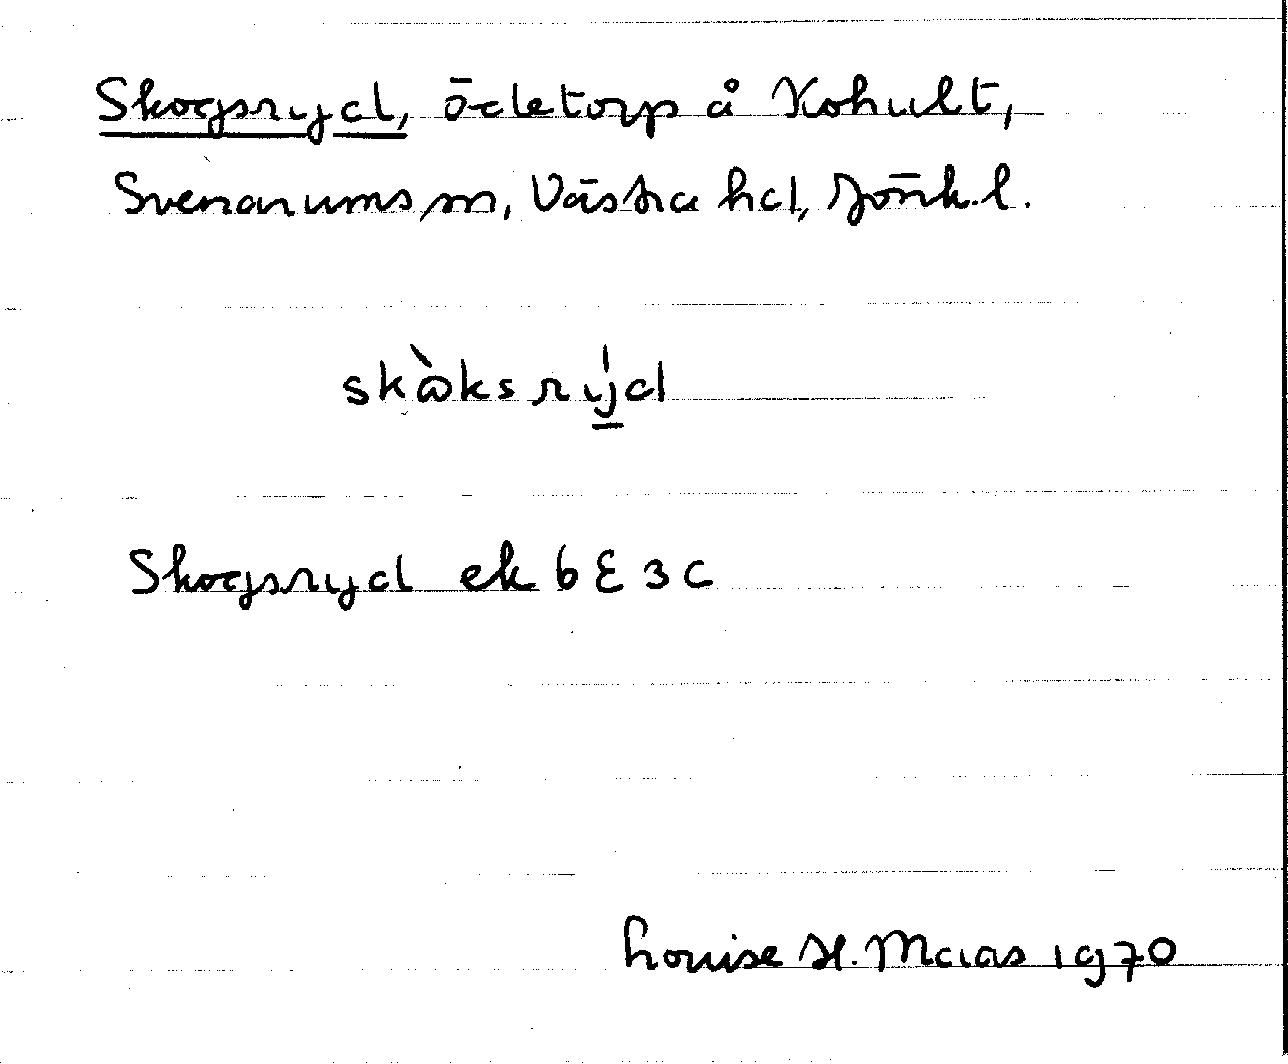 Skogsryd, ödetorp å Kohult,
Svenarums sn, Västra hd, Jönk.l.
skὼksrý̲d
Skogsryd ek 6 E 3 c
Louise H. Maias 1970